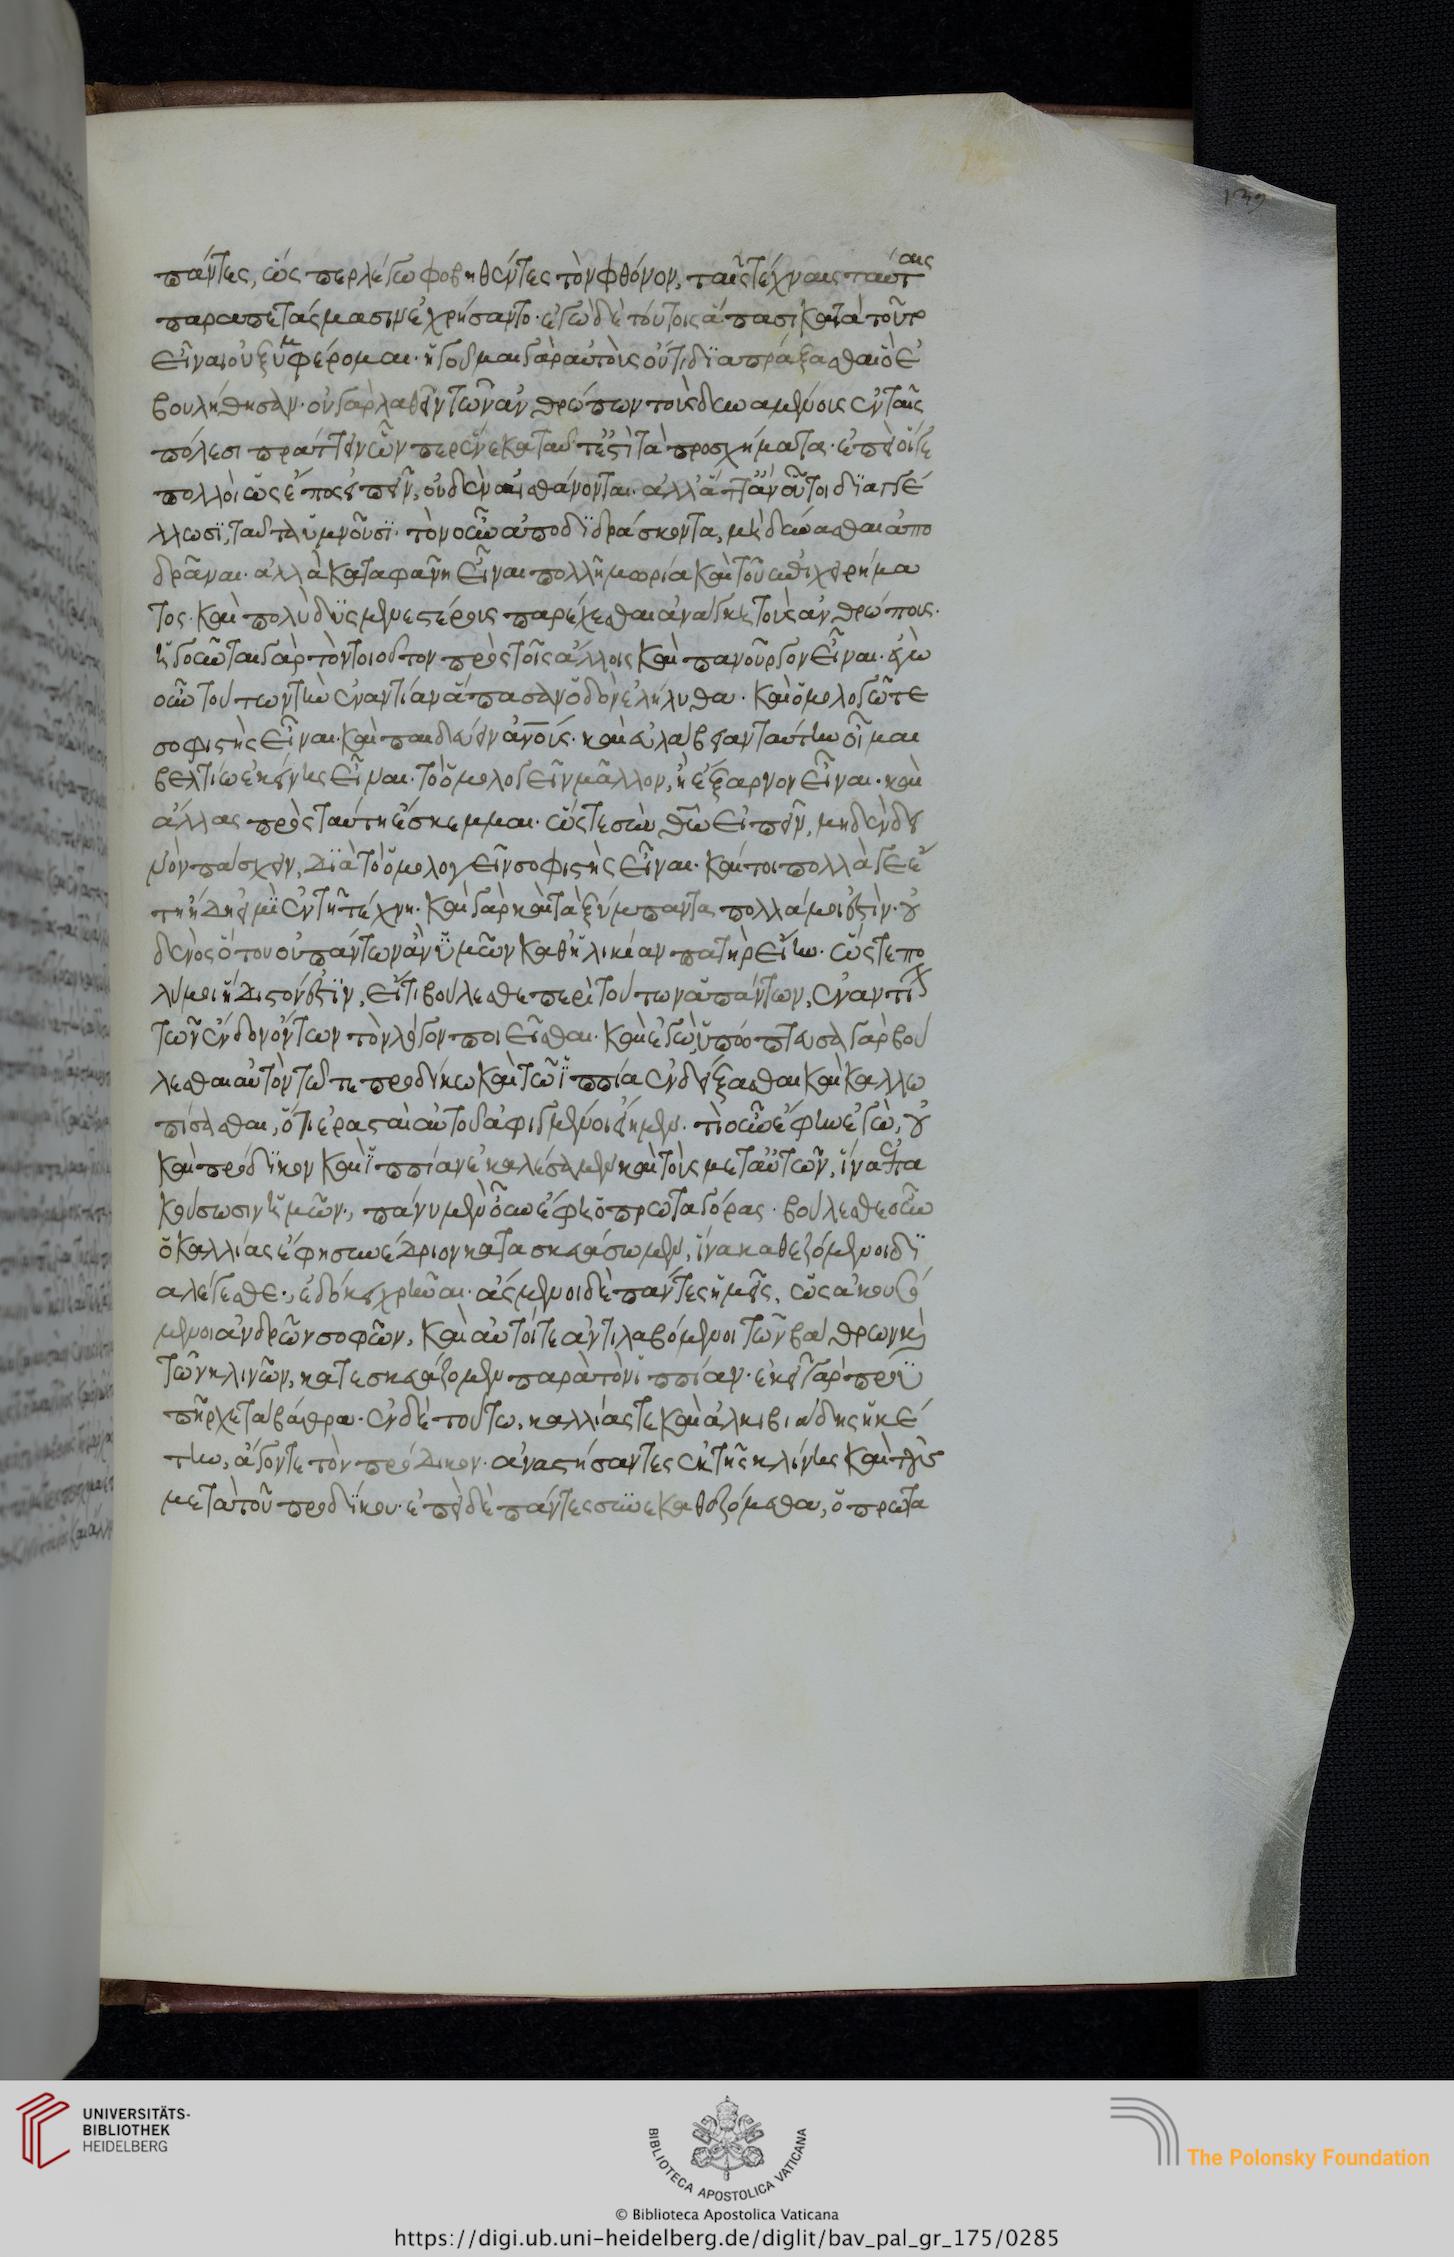 139
πάντες, ὥσπερ λέγω φοβηθέντες τὸν φθόνον, ταῖς τέχναις ταύταις
παραπετάσμασιν ἐχρήσαντο· ἐγὼ δὲ τούτοις ἅπασι κατὰ τοῦτο
εἶναι οὐ ξυμφέρομαι· ἡγοῦμαι γὰρ αὐτοὺς οὔτι διαπράξασθαι ὃ ἐ
βουλήθησαν· οὐ γὰρ λαθεῖν τῶν ἀνθρώπων τοὺς δυναμένους ἐν ταῖς
πόλεσι πράττειν ὧνπερ ἕνεκα ταῦτ' ἐστὶ τὰ προσχήματα· ἐπεὶ οἵγε
πολλοὶ ὡς ἔπος εἰπεῖν, οὐδὲν αἰσθάνονται· ἀλλ' ἅττ' ἂν οὗτοι διαγγέ
λλωσι, ταῦτα ὑμνοῦσι· τὸν οὖν ἀποδιδράσκοντα, μὴ δύνασθαι ἀπο
δρᾶναι· ἀλλὰ καταφανῆ εἶναι πολλὴ μωρία καὶ τοῦ ἐπιχειρήμα
τος· καὶ πολὺ δυσμενεστέρους παρέχεσθαι ἀνάγκη τοὺς ἀνθρώπους·
ἡγοῦνται γὰρ τὸν τοιοῦτον πρὸς τοῖς ἄλλοις καὶ πανοῦργον εἶναι· ἐγὼ
οὖν τούτων τὴν ἐναντίαν ἅπασαν ὁδὸν ἐλήλυθα· καὶ ὁμολογῶ τε
σοφιστὴς εἶναι· καὶ παιδεύειν ἀνους· καὶ εὐλάβειαν ταύτην οἶμαι
βελτίω ἐκείνης εἶναι· τὸ ὁμολογεῖν μᾶλλον, ἢ ἔξαρνον εἶναι· καὶ
ἄλλας πρὸς ταύτῃ ἔσκεμμαι· ὥστε σὺν θεῷ εἰπεῖν, μηδὲν δει
νὸν πάσχειν, διὰ τὸ ὁμολογεῖν σοφιστὴς εἶναι· καίτοι πολλά γε ἔ
τη ἤδη εἰμὶ ἐν τῇ τέχνῃ· καὶ γὰρ καὶ τὰ ξύμπαντα πολλά μοι ἐστίν· οὐ
δενὸς ὅτου οὐ πάντων ἂν ὑμῶν καθ' ἡλικίαν πατὴρ εἴην· ὥστε πο
λύ μοι ἥδιστόν ἐστιν, εἴ τι βούλεσθε περὶ τούτων ἁπάντων, ἐναντίον
τῶν ἔνδον ὄντων τὸν λόγον ποιεῖσθαι· καὶ ἐγώ, ὑπόπτευσα γὰρ βού
λεσθαι αὐτὸν τῷ τε προδίκῳ καὶ τῷ ἱππίᾳ ἐνδείξασθαι καὶ καλλω
πίσασθαι, ὅτι ἐρασταὶ αὐτοῦ ἀφιγμένοι εἴημεν· τί οὖν ἔφην ἐγώ, οὐ
καὶ πρόδικον καὶ ἱππίαν ἐκαλέσαμεν καὶ τοὺς μετ' αὐτῶν, ἵνα ἐπα
κούσωσιν ἡμῶν·, πάνυ μὲν οὖν ἔφη ὁ πρωταγόρας· βούλεσθε οὖν
ὁ καλλίας ἔφη συνέδριον κατασκευάσωμεν, ἵνα καθεζόμενοι δι
αλέγεσθε·, ἐδόκει χρῆναι· ἄσμενοι δὲ πάντες ἡμεῖς, ὡς ἀκουσό
μενοι ἀνδρῶν σοφῶν, καὶ αὐτοί τε ἀντιλαβόμενοι τῶν βάθρων καὶ
τῶν κλινῶν, κατεσκευάζομεν παρὰ τὸν ἱππίαν· ἐκεῖ γὰρ προϋ
πῆρχε τὰ βάθρα· ἐν δὲ τούτῳ, καλλίας τε καὶ ἀλκιβιάδης ἡκέ
την, ἄγοντε τὸν πρόδικον· ἀναστήσαντες ἐκ τῆς κλίνης καὶ τοὺς
μετὰ τοῦ προδίκου· ἐπεὶ δὲ πάντες συνεκαθεζόμεθα, ὁ πρωτα
UNIVERSITÄTS-
BIBLIOTHEK
HEIDELBERG
BIBLIOTECA APOSTOLICA VATICANA
The Polonsky Foundation
© Biblioteca Apostolica Vaticana
https://digi.ub.uni-heidelberg.de/diglit/bav_pal_gr_175/0285